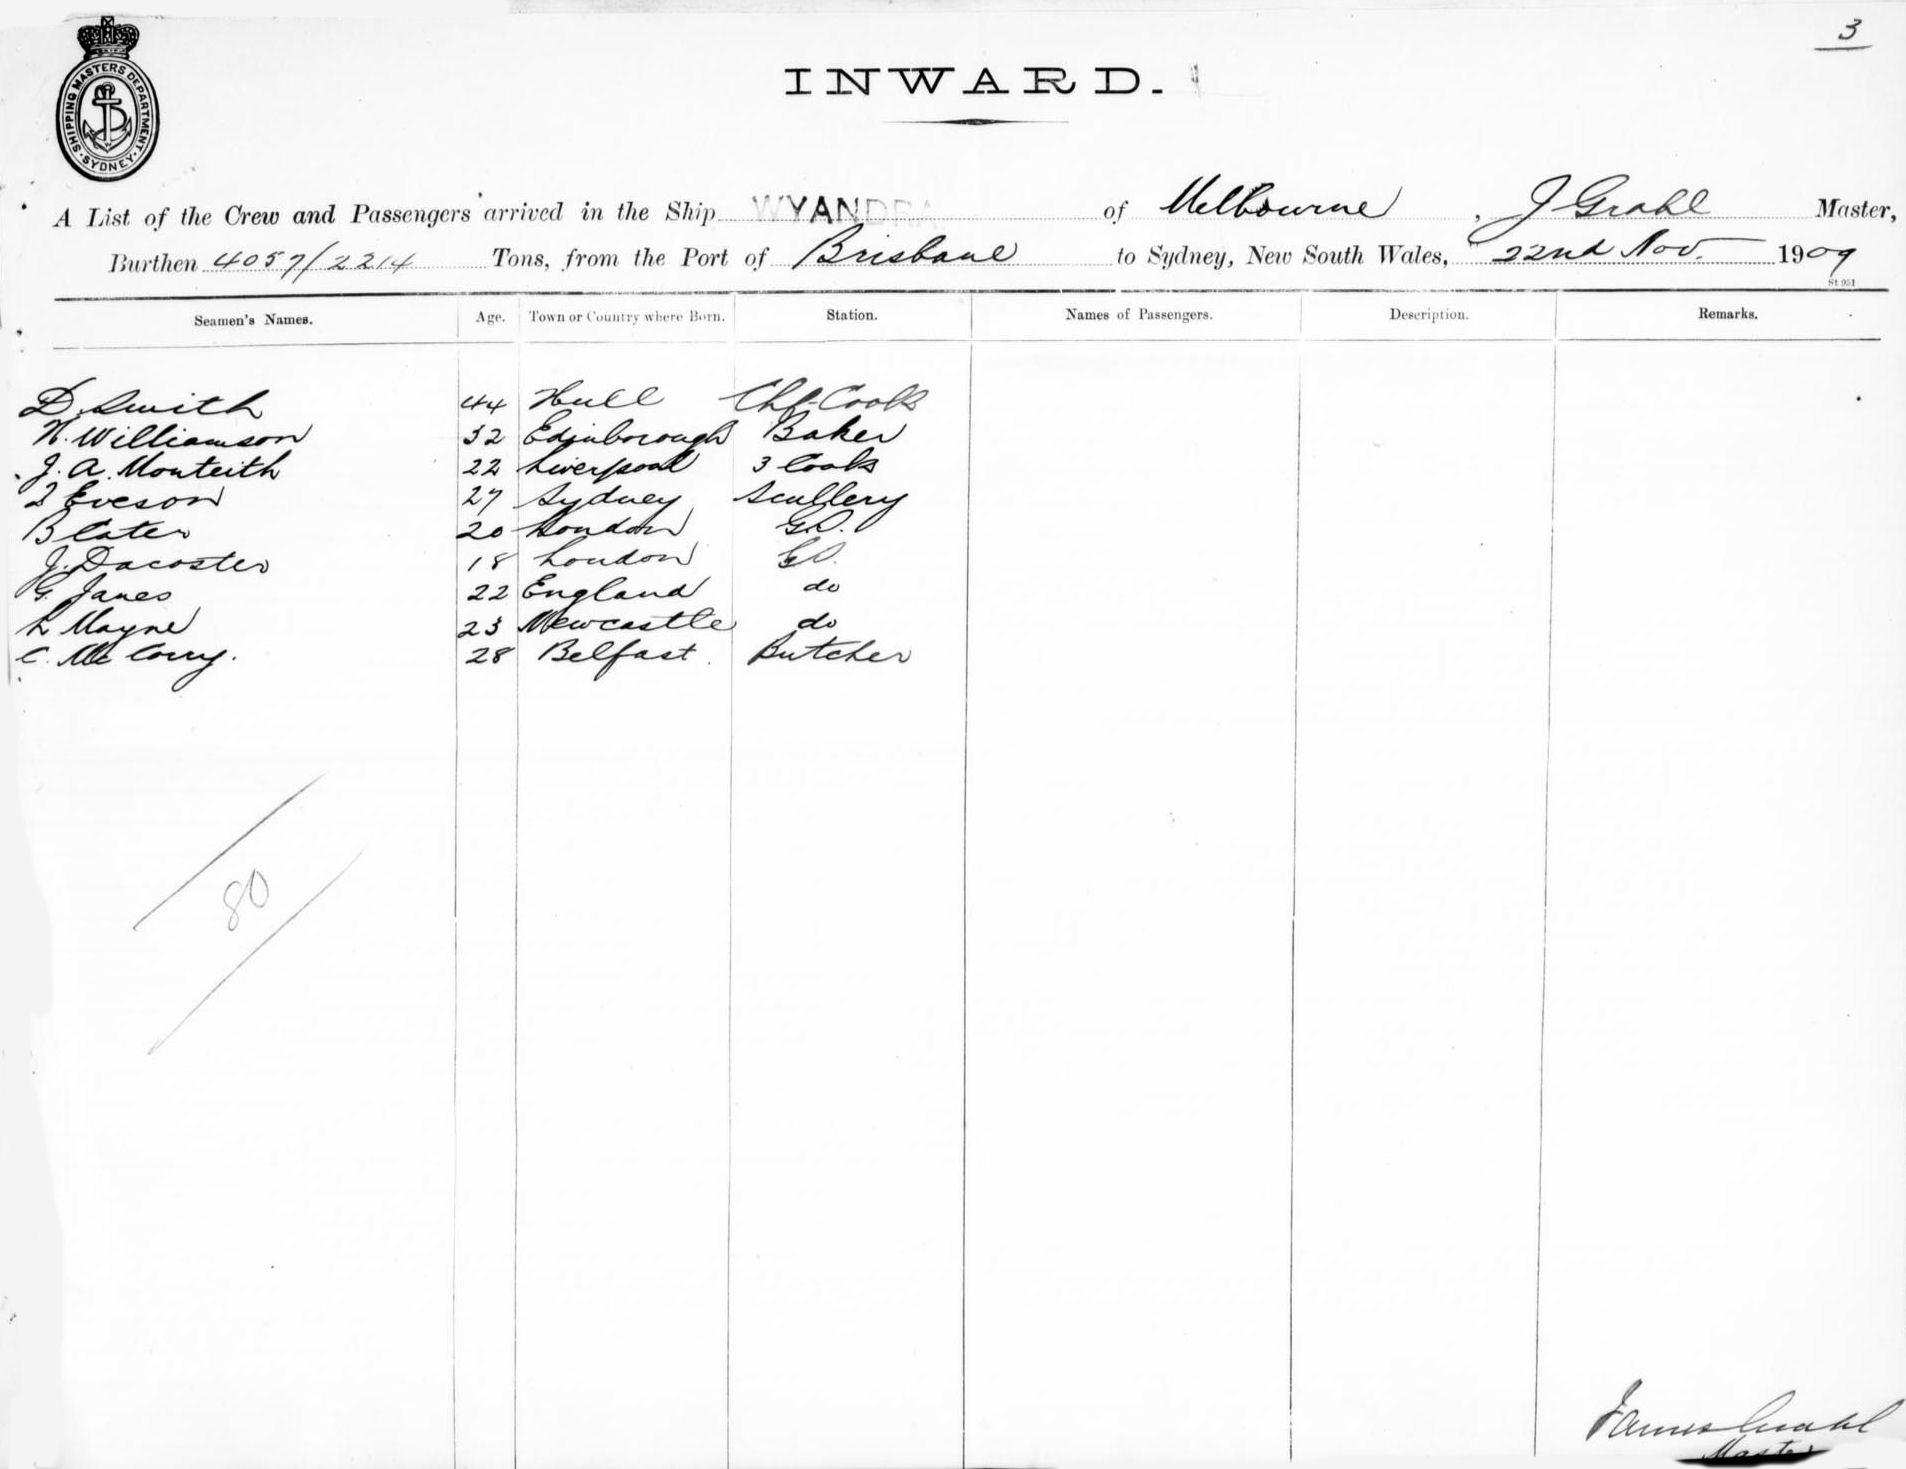 3
SHIPPING MASTERS DEPARTMENT. SYDNEY.
INWARD.
A List of the Crew and Passengers arrived in the Ship WYANDRA of Melbourne, J Grahl Master,
Burthen 4057/2214 Tons, from the Port of Brisbane to Sydney, New South Wales, 22nd Nov. 1909
St 951
Seamen's Names. Age. Town or Country where Born. Station. Names of Passengers. Description. Remarks.
D. Smith 44 Hull Chf Cook
H. Williamson 32 Edinborough Baker
J. A. Monteith 22 Liverpool 3 Cook
Eveson 27 Sydney Scullery
B Cater 20 London G.P.
J. Dacoster 18 London G.P.
G. Janes 22 England do
L Mayne 23 Newcastle do
C. Mc Corry. 28 Belfast. Butcher
80
James Grahl
Master